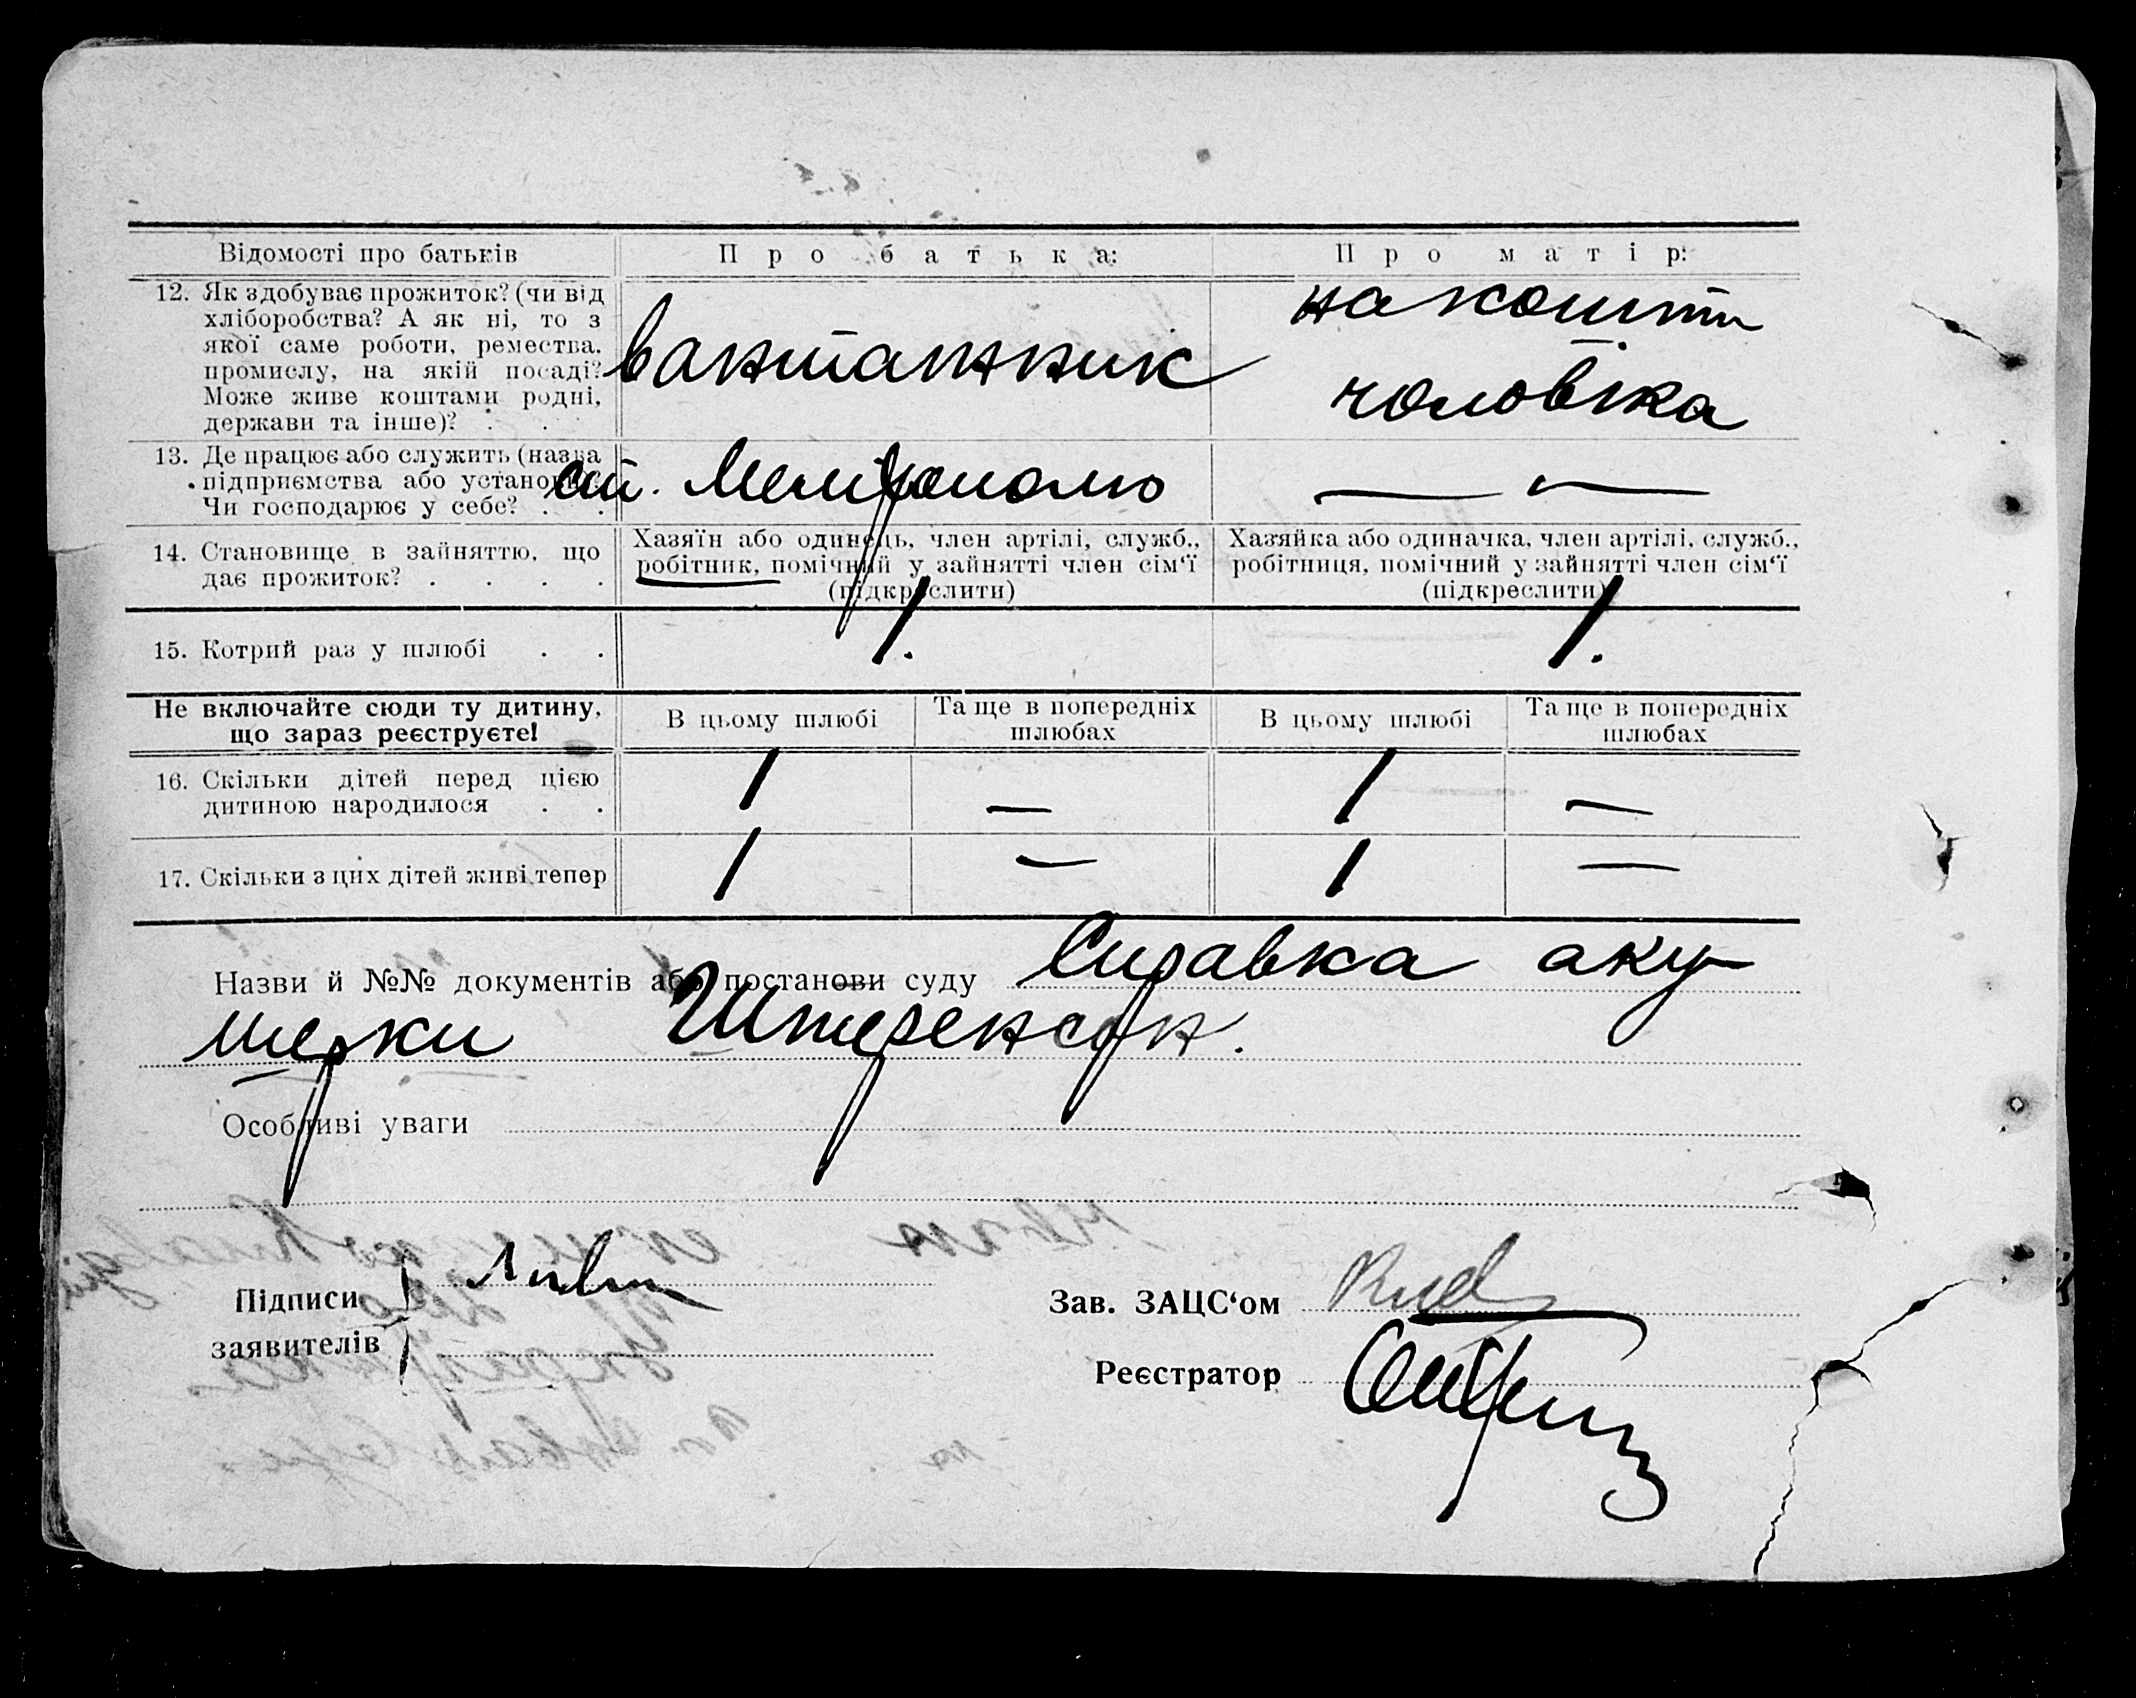 Відомості про батьків
Про батька:
Про матір:
12. Як здобуває прожиток? (чи від
хліборобства? А як ні, то з
якої саме роботи, ремества.
промислу, на якій посаді?
Може живе коштами родні,
держави та інше)? . .
вантажник
на кошти
чоловіка
13. Де працює або служить (назва
підприємства або установи)?
Чи господарює у себе? . .
ст. Мелітополю
— —
14. Становище в зайняттю, що
дає прожиток? . . . .
Хазяїн або одинець, член артілі, служб.,
робітник, помічний у зайнятті член сім‘ї
(підкреслити)
Хазяйка або одиначка, член артілі, служб.,
робітниця, помічний у зайнятті член сім‘ї
(підкреслити)
15. Котрий раз у шлюбі . .
1.
1.
Не включайте сюди ту дитину,
що зараз реєструєте!
В цьому шлюбі
Та ще в попередніх
шлюбах
В цьому шлюбі
Та ще в попередніх
шлюбах
16. Скільки дітей перед цією
дитиною народилося . .
1 — 1 —
17. Скільки з цих дітей живі тепер
1 — 1 —
Назви й №№ документів або постанови суду Справка аку-
шерки Штеренсон.
Особливі уваги
Підписи
заявителів
Зав. ЗАЦС‘ом
Реєстратор